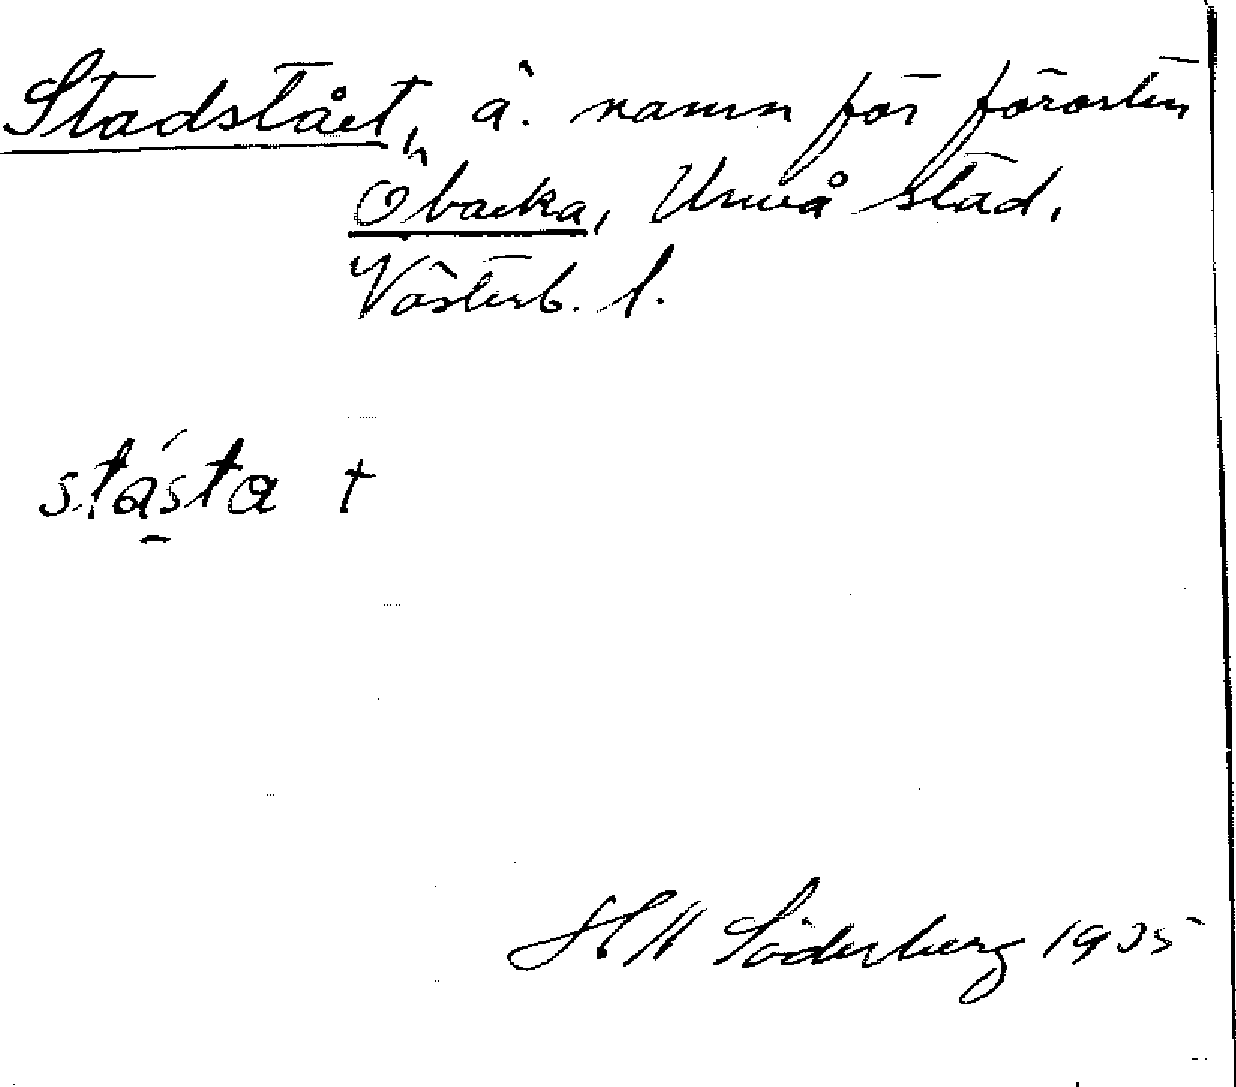 Stadstået, ä. namn för förorten
Öbacka, Umeå stad,
Västerb. l.
stásta +
H Söderberg 1935